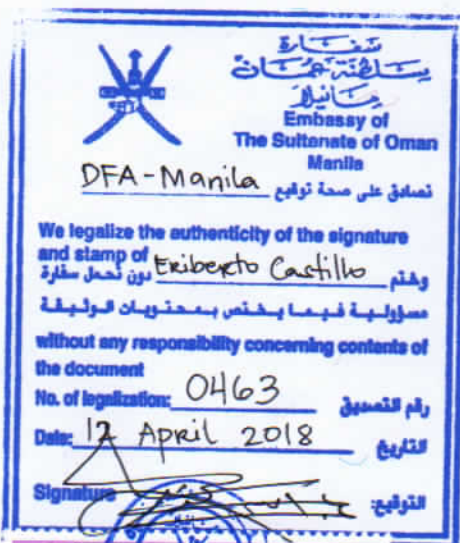 سفارة
سلطنة عمان
مانيلا
Embassy of
The Sultanate of Oman
Manila
DFA-Manila نصادق على صحة توقيع
We legalize the authenticity of the signature
and stamp of Eriberto Castillo وختم دون تحمل سفارة
مسؤولية فيما يختص بمحتويات الوثيقة
without any responsibility concerning contents of
the document
No. of legalization: 0463 رقم التصديق
Date: 12 April 2018 التاريخ
Signature التوقيع: